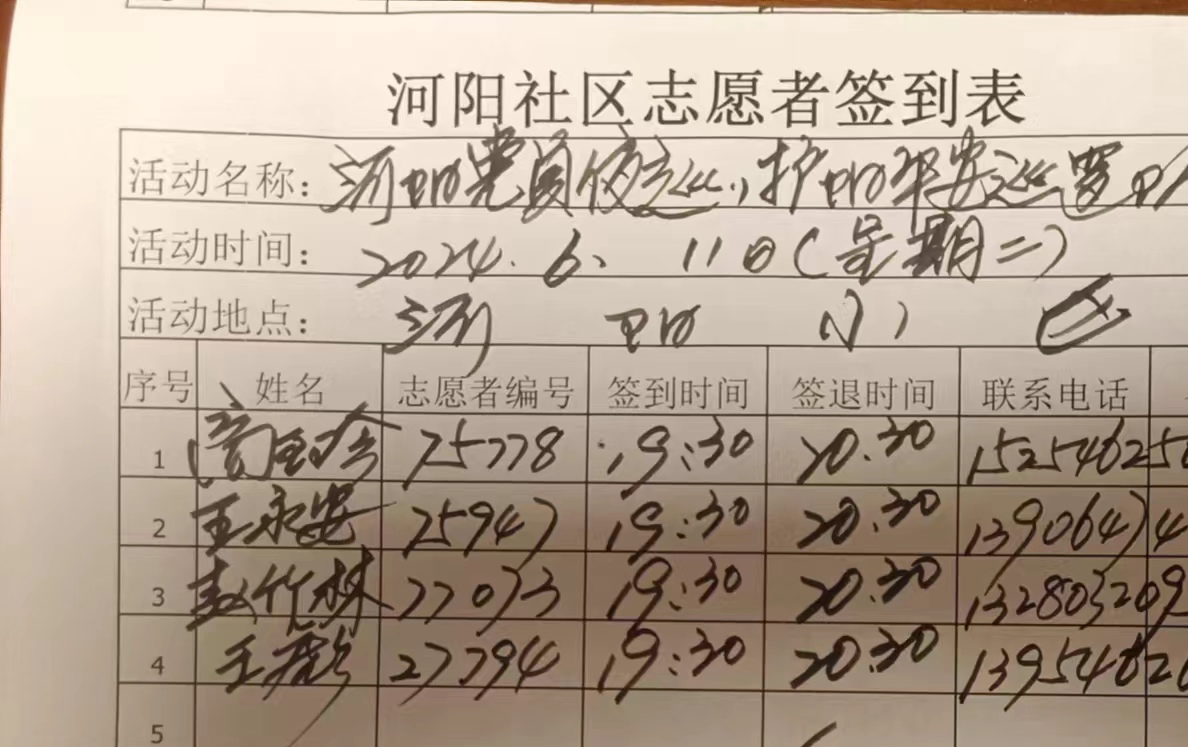 河阳社区志愿者签到表
活动名称：河阳党员夜巡，护阳平安巡逻队
活动时间：2024.6、11日（星期二）
活动地点：河阳小区
序号 姓名 志愿者编号 签到时间 签退时间 联系电话
1 75778 19:30 20.30
2 王永安 75947 19:30 20.30
3 赵竹林 19:30 20.30
4 27794 19:30 20.30
5